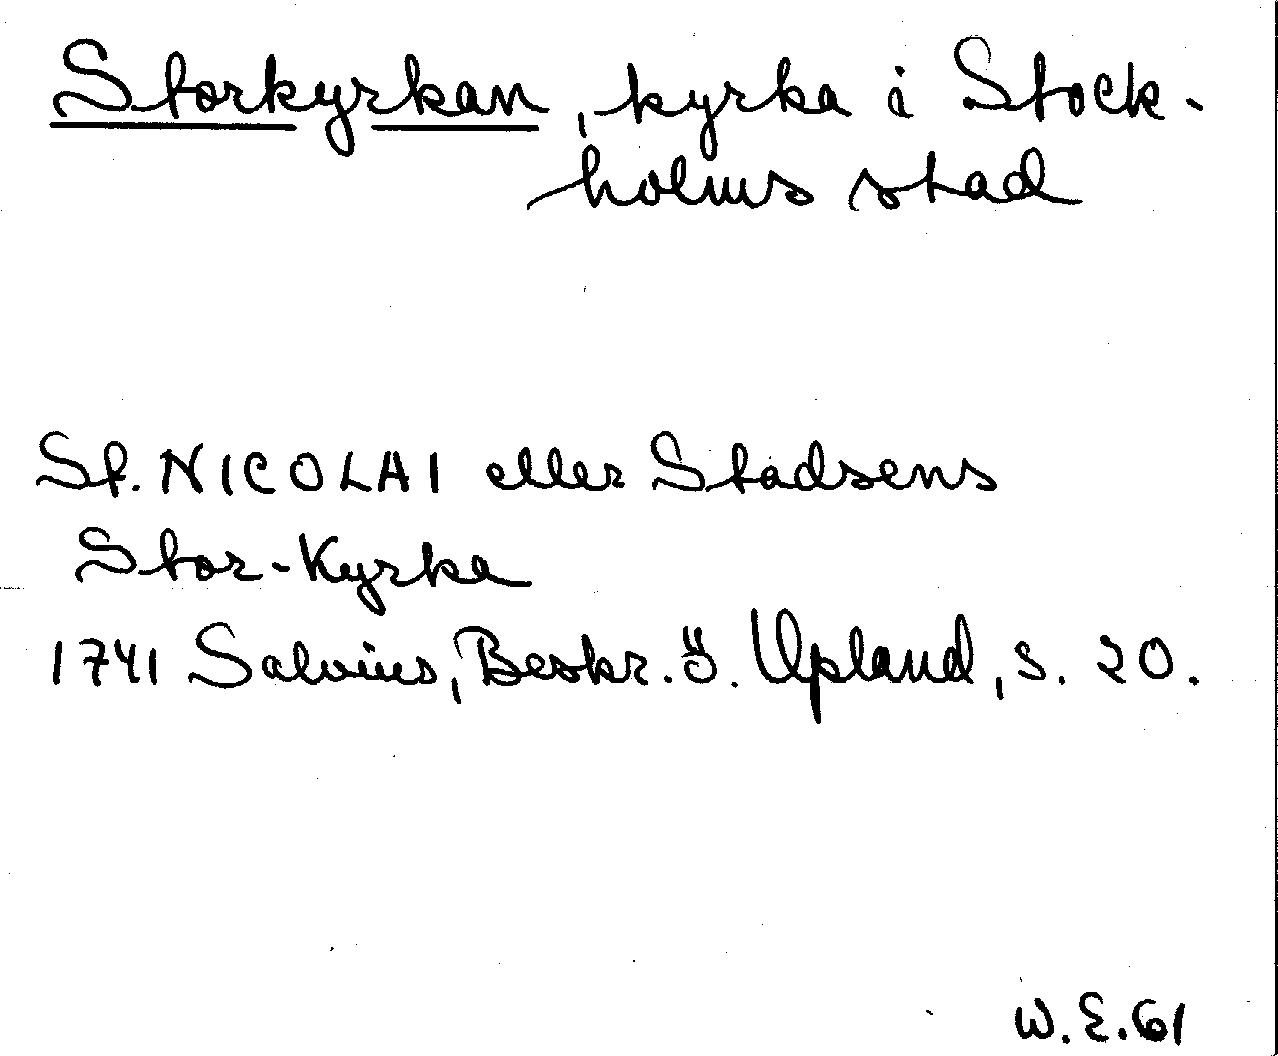 Storkyrkan, kyrka i Stock-
holms stad
St. NICOLAI eller Stadsens
Stor-Kyrka
1741 Salvius, Beskr. ö. Upland, s. 20.
W. E. 61